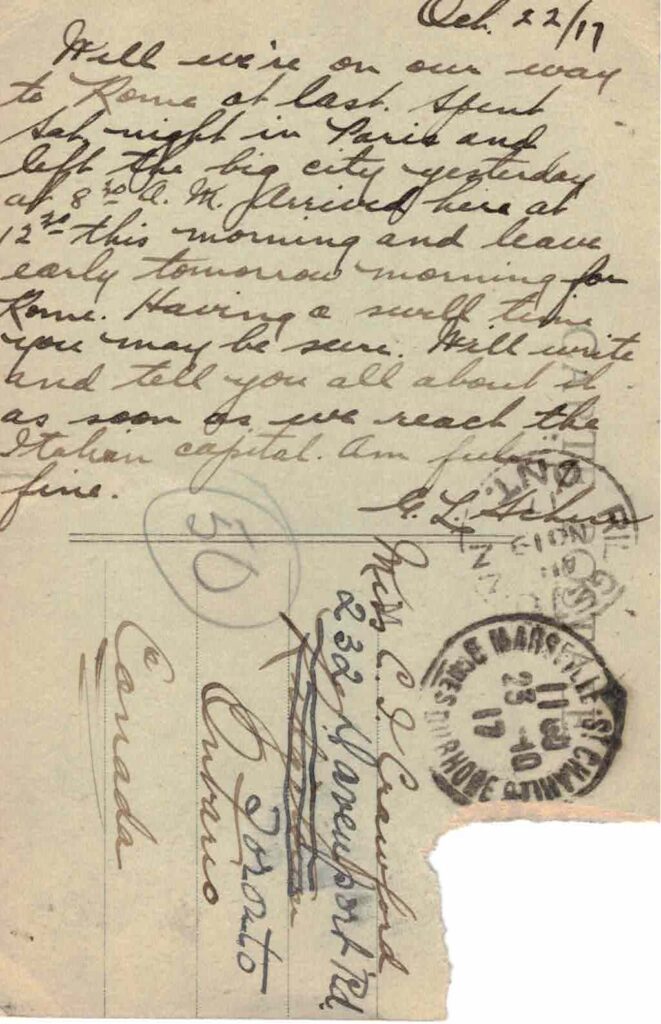 Oct. 22/17
Well we're on our way
to Rome at last. Spent
Sat night in Paris and
left the big city yesterday
at 8³⁰ A.M. Arrived here at
12³⁰ this morning and leave
early tomorrow morning for
Rome. Having a swell time
you may be sure. Will write
and tell you all about it
as soon as we reach the
Italian capital. Am feelin
fine.
G. L.
50
Miss C. I. Crawford
232 Davenport Rd.
Toronto
Ontario
Canada
ONT.
NO 19
MARSEILLE ST CHARLES
BCHES DU RHONE
11
23 -10
17